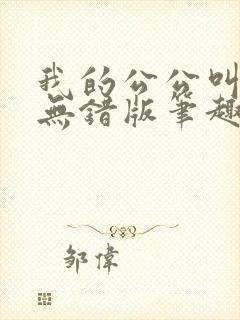 我的公公叫
無錯版筆趣
鄒偉